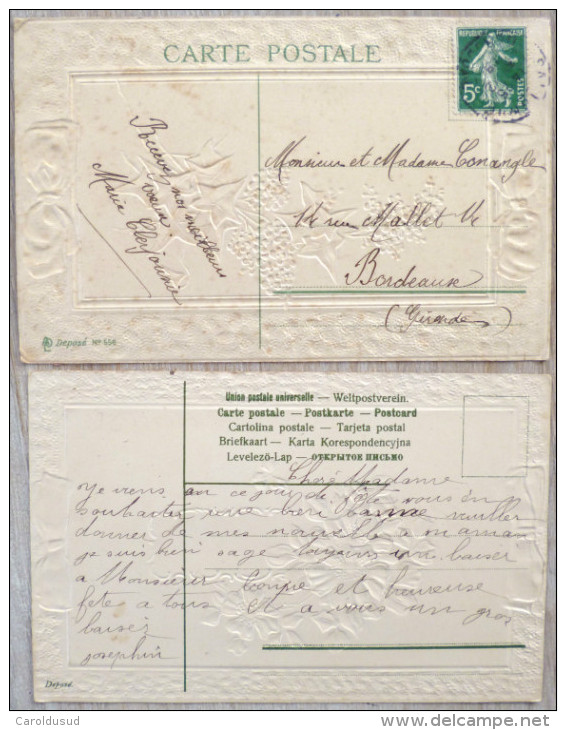 CARTE POSTALE
REPUBLIQUE FRANÇAISE
5c
POSTES
Recevez nos meilleurs
vœux
Marie
Monsieur et Madame Conangle
14 rue Mallet 14
Bordeaux
(Gironde)
Deposé Nº 656
Union postale universelle — Weltpostverein.
Carte postale — Postkarte — Postcard
Cartolina postale — Tarjeta postal
Briefkaart — Karta Korespondencyjna
Levelező-Lap — ОТКРЫТОЕ ПИСЬМО
Chère Madame
Je viens en ce jour de fête vous en
souhaiter une bien bonne veuller
donner de mes nouvelle a maman
je suis bien sage toujours un baiser
a Monsieur et heureuse
fête a tous et a vous un gros
baiser
josephin
Deposé.
Caroldusud
delcampe.net